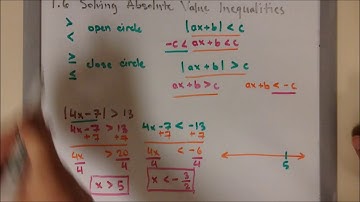 1.6 Solving Absolute Value Inequalities
> < open circle
|ax+b| < c
-c < ax+b < c
≥ ≤ close circle
|ax+b| > c
ax+b > c ax+b < -c
|4x-7| > 13
4x-7 > 13 4x-7 < -13
+7 +7 +7 +7
4x/4 > 20/4 4x/4 < -6/4
x > 5 x < -3/2
5